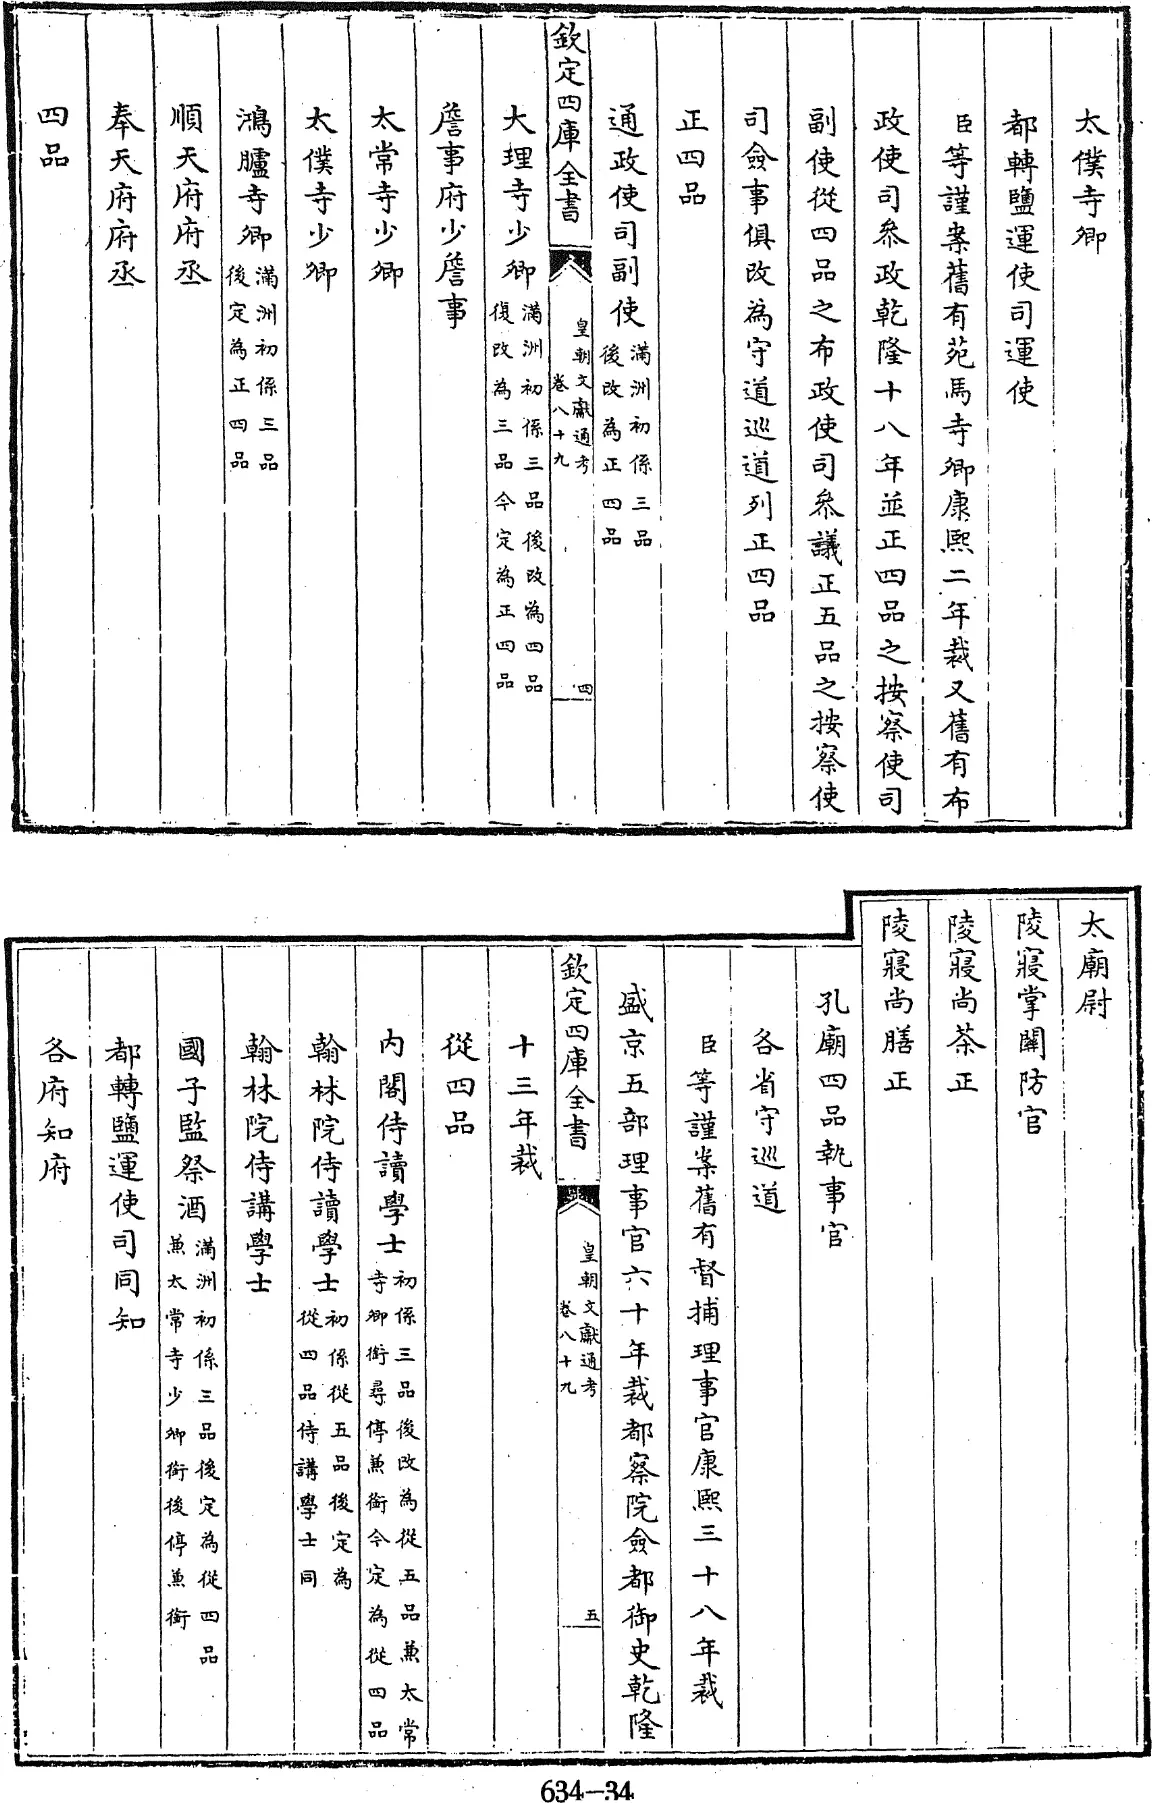 太僕寺卿
都轉鹽運使司運使
臣等謹案舊有苑馬寺卿康熙二年裁又舊有布
政使司叅政乾隆十八年並正四品之按察使司
副使從四品之布政使司叅議正五品之按察使
司僉事俱改為守道巡道列正四品
正四品
通政使司副使滿洲初係三品後改為正四品
欽定四庫全書
皇朝文獻通考
卷八十九
四
大理寺少卿滿洲初係三品後改為四品復改為三品今定為正四品
詹事府少詹事
太常寺少卿
太僕寺少卿
鴻臚寺卿滿洲初係三品後定為正四品
順天府府丞
奉天府府丞
四品
太廟尉
陵寢掌關防官
陵寢尚茶正
陵寢尚膳正
孔廟四品執事官
各省守巡道
臣等謹案舊有督捕理事官康熙三十八年裁
盛京五部理事官六十年裁都察院僉都御史乾隆
欽定四庫全書
皇朝文獻通考
卷八十九
五
十三年裁
從四品
内閣侍讀學士初係三品後改為從五品兼太常寺卿銜尋停兼銜今定為從四品
翰林院侍讀學士初係從五品後定為從四品侍講學士同
翰林院侍講學士
國子監祭酒滿洲初係三品後定為從四品兼太常寺少卿銜後停兼銜
都轉鹽運使司同知
各府知府
634-34